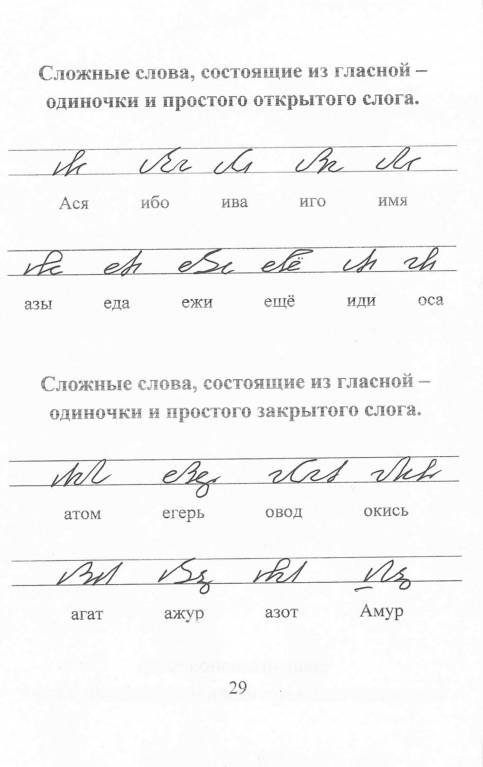 Сложные слова, состоящие из гласной –
одиночки и простого открытого слога.
Ася ибо ива иго имя
азы еда ежи ещё иди оса
Сложные слова, состоящие из гласной –
одиночки и простого закрытого слога.
атом егерь овод окись
агат ажур азот Амур
29